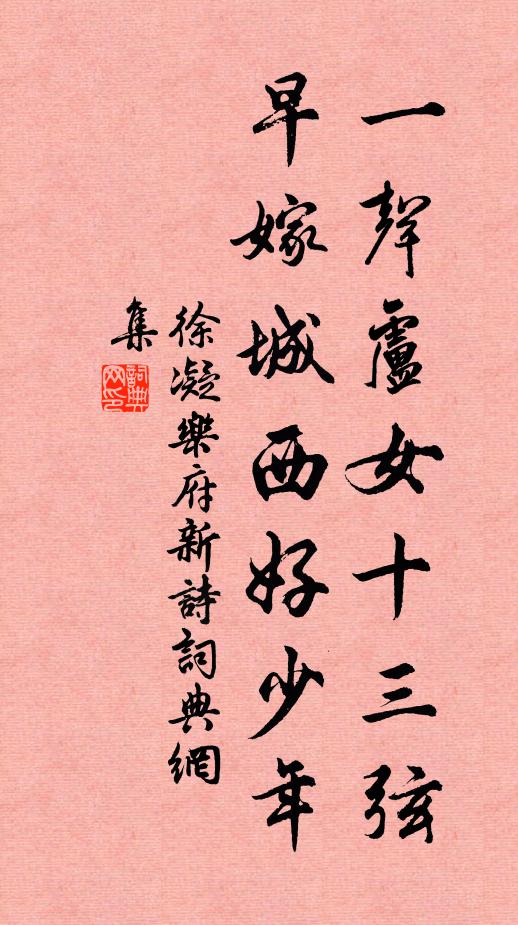 一聲盧女十三弦
早嫁城西好少年
徐凝樂府新詩詞典網
集
詞典網印